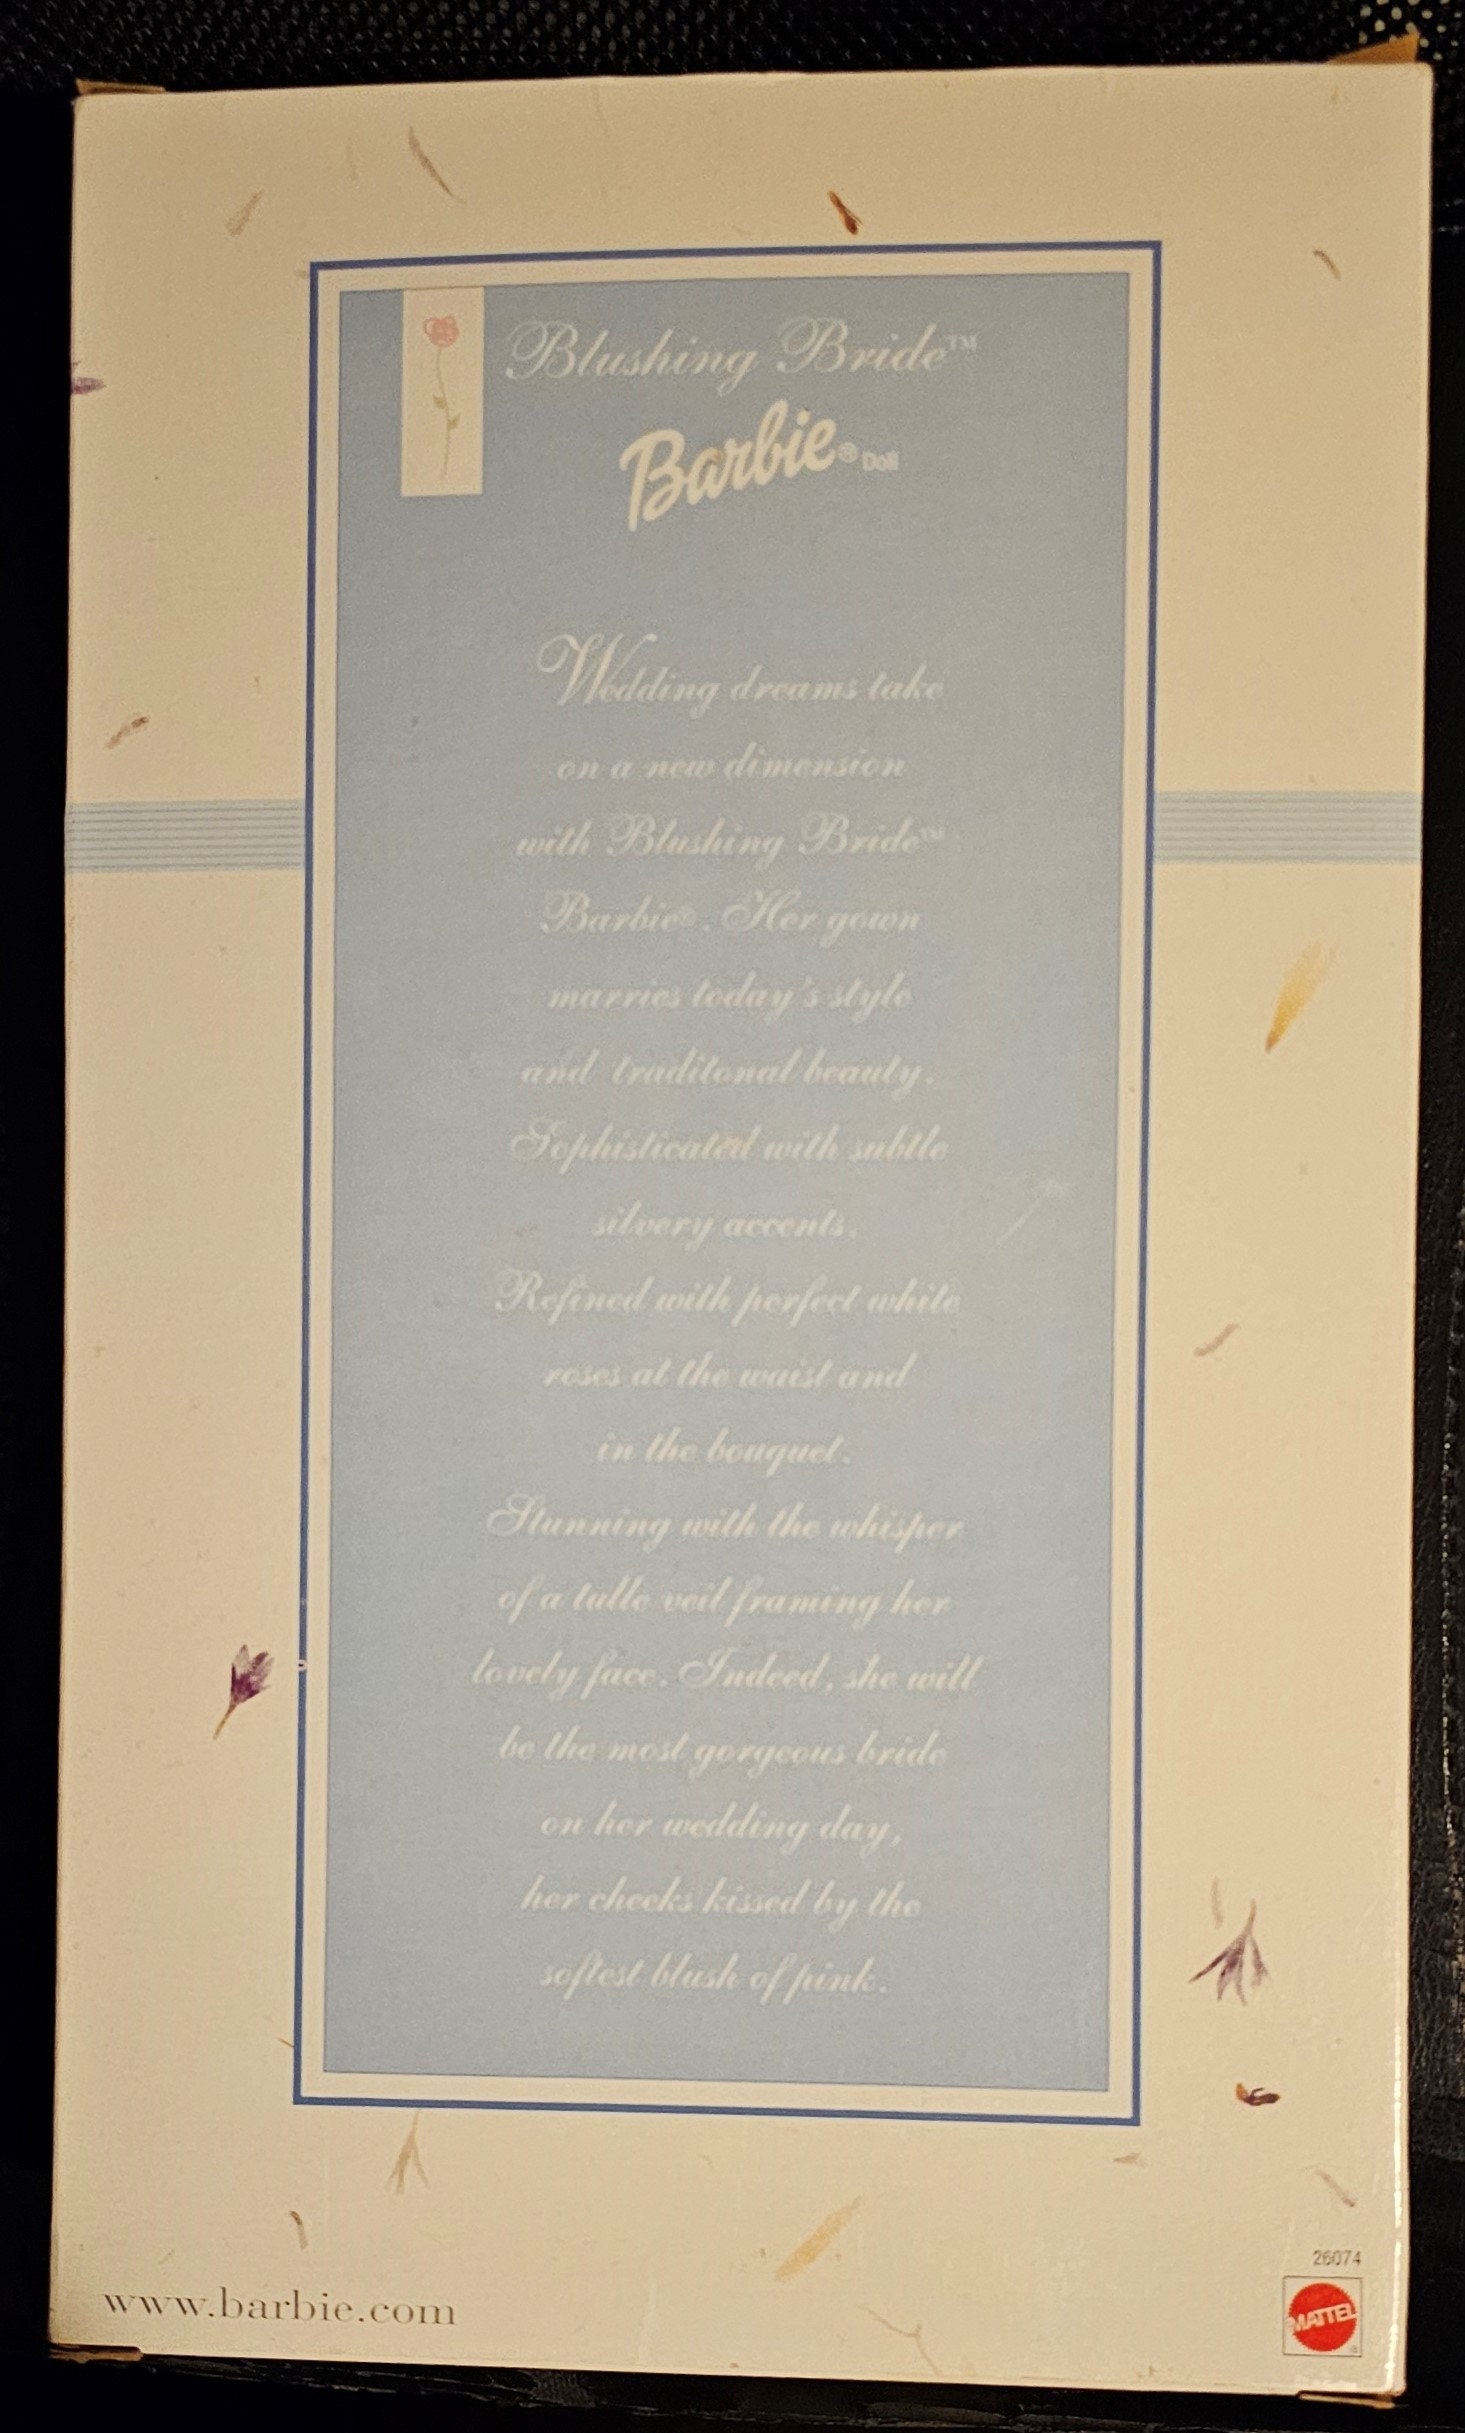 Blushing Bride™
Barbie® Doll
Wedding dreams take
on a new dimension
with Blushing Bride™
Barbie®. Her gown
marries today's style
and traditonal beauty.
Sophisticated with subtle
silvery accents.
Refined with perfect white
roses at the waist and
in the bouquet.
Stunning with the whisper
of a tulle veil framing her
lovely face. Indeed, she will
be the most gorgeous bride
on her wedding day,
her cheeks kissed by the
softest blush of pink.
www.barbie.com
26074
MATTEL®